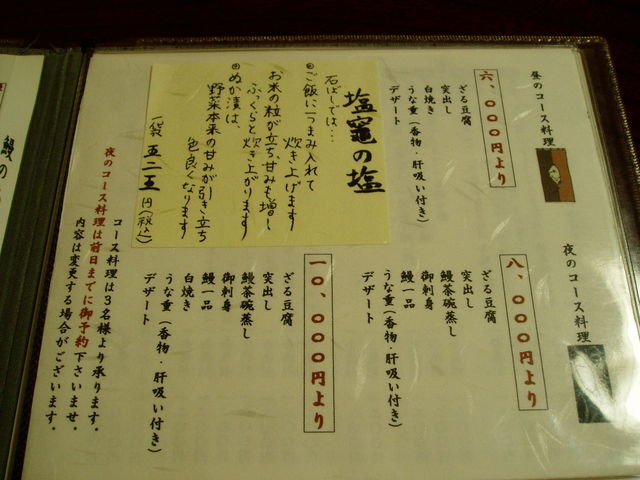 昼のコース料理
六、〇〇〇円より
ざる豆腐
突出し
白焼き
うな重(香物・肝吸い付き)
デザート
夜のコース料理
八、〇〇〇円より
ざる豆腐
突出し
鰻茶碗蒸し
御刺身
鰻一品
うな重(香物・肝吸い付き)
デザート
一〇、〇〇〇円より
ざる豆腐
突出し
鰻茶碗蒸し
御刺身
鰻一品
白焼き
うな重(香物・肝吸い付き)
デザート
塩竈の塩
石ばしでは…
ご飯に一つまみ入れて
炊き上げます
お米の粒が立ち、甘みも増し
ふっくらと炊き上がります
ぬか漬は
野菜本来の甘みが引き立ち
色良くなります
一袋 五二五円(税込)
コース料理は3名様より承ります。
夜のコース料理は前日までに御予約下さいませ。
内容は変更する場合がございます。
鰻の